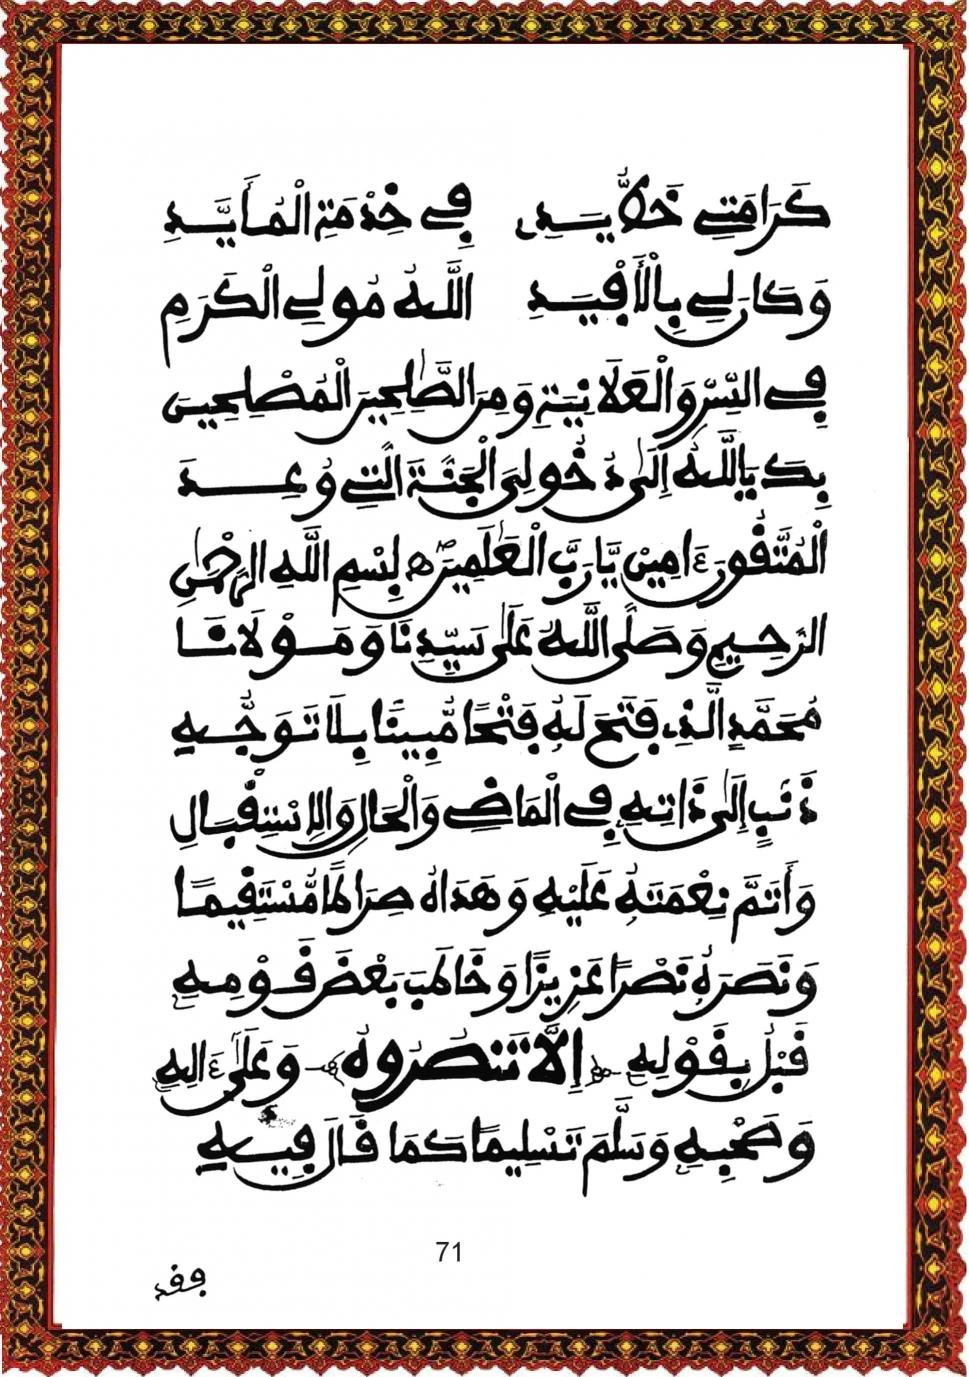 كَرَامَتِي خَلَّا يَدِي فِي خِدْمَةِ الْمُأَيَّدِ
وَكَانَ لِي بِالْأَفْيَدِ اللَّهُ مُولِي الْكَرَمِ
فِي السِّرِّ وَالْعَلَانِيَةِ وَمِنَ الصَّٰلِحِينَ الْمُصْلِحِينَ
بِكَ يَا اللَّهُ إِلَىٰ دُخُولِيَ الْجَنَّةَ الَّتِي وُعِدَ
الْمُتَّقُونَ ءَامِينَ يَا رَبَّ الْعَٰلَمِينَ بِسْمِ اللَّهِ الرَّحْمَٰنِ
الرَّحِيمِ وَصَلَّى اللَّهُ عَلَىٰ سَيِّدِنَا وَمَوْلَانَا
مُحَمَّدٍ الَّذِي فَتَحَ لَهُ فَتْحًا مُّبِينًا بِلَا تَوَجُّهِ
ذَنْبٍ إِلَىٰ ذَاتِهِ فِي الْمَاضِي وَالْحَالِ وَالِاسْتِقْبَالِ
وَأَتَمَّ نِعْمَتَهُ عَلَيْهِ وَهَدَاهُ صِرَاطًا مُّسْتَقِيمًا
وَنَصَرَهُ نَصْرًا عَزِيزًا وَخَاطَبَ بَعْضَ قَوْمِهِ
قَبْلُ بِقَوْلِهِ ﴿إِلَّا تَنصُرُوهُ﴾ وَعَلَىٰ ءَالِهِ
وَصَحْبِهِ وَسَلَّمَ تَسْلِيمًا كَمَا قَالَ فِيهِ
71
فقد